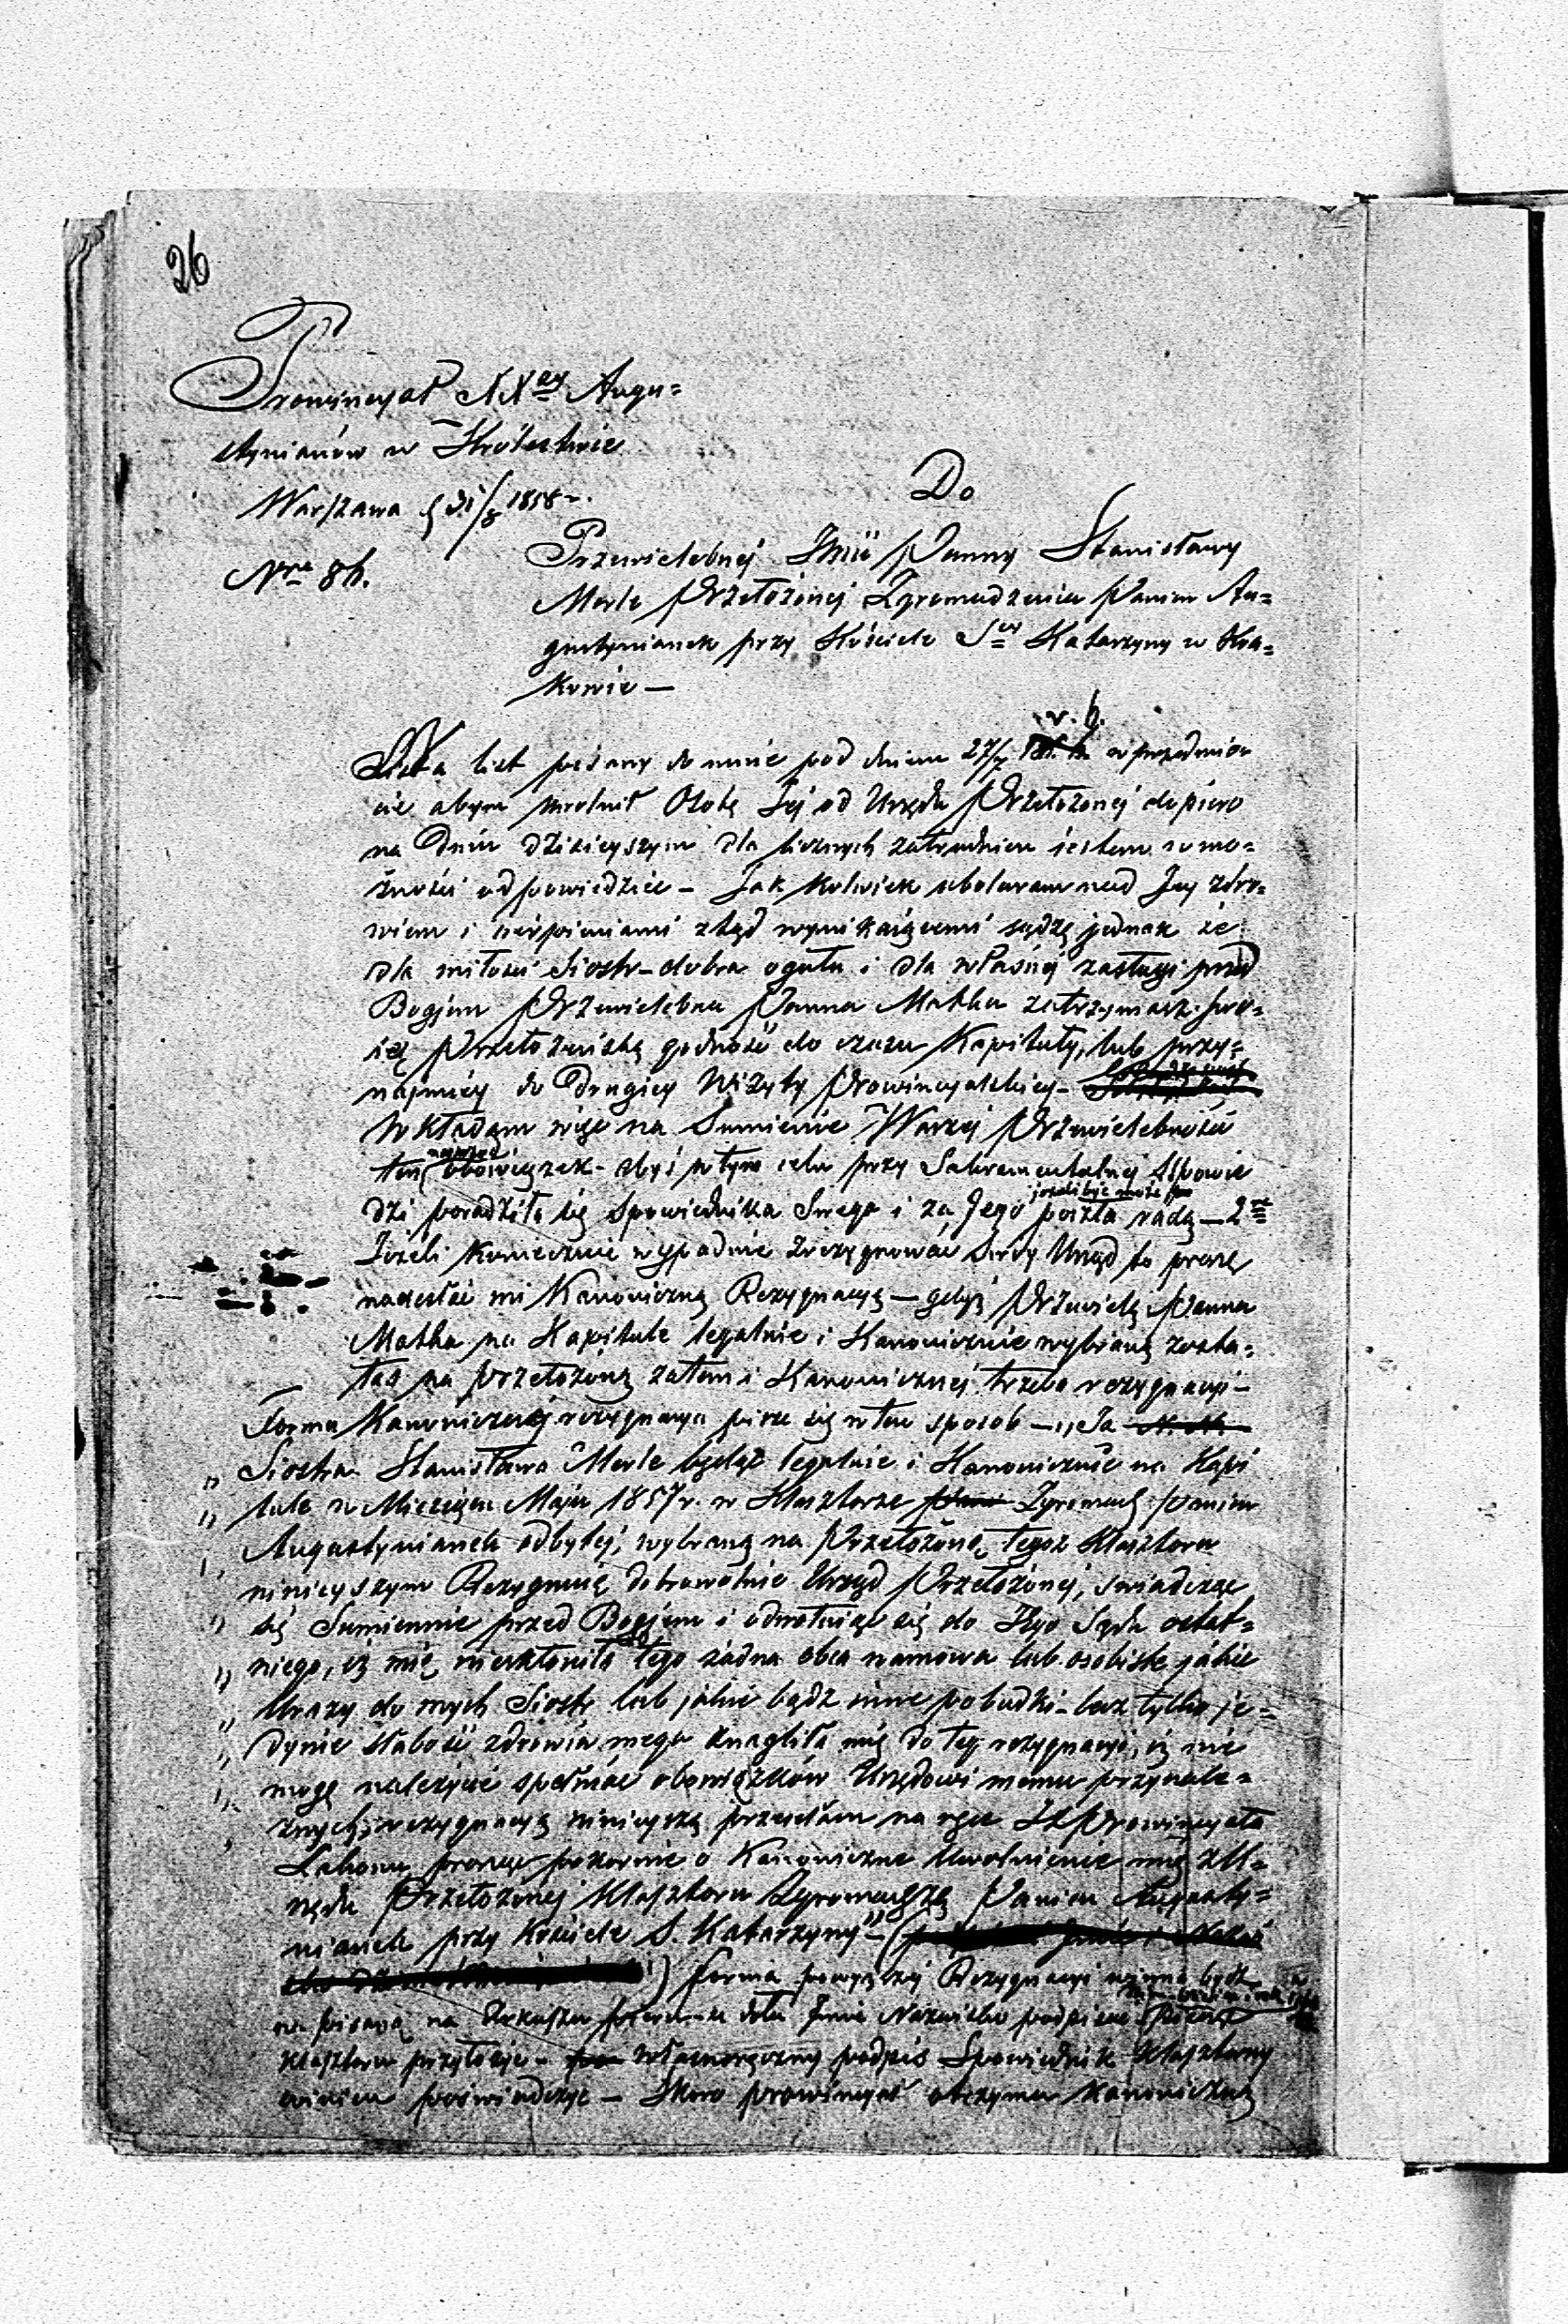 26
Prowincyał XX Augu=
stynianów w Królestwie
Warszawa d 31/8 1858 r.
Nro 86.
Do
Przewielebnej Imić Panny Stanisławy
Merle Przełożonej Zgromadzenia Panien Au=
gustynianek przy Kościele S Katarzyny w Kra=
kowie —
v. b.
Na list pisany do mnie pod dniem 27/7 w przedmio
cie abym uwolnił Osobę Jej od Urzędu Przełożonej dopiero
na Dniu dzisieyszym dla licznych zatrudnien jestem w mo=
żności odpowiedzieć – Jak kolwiek ubolewam nad Jey zdro=
wiem i cierpieniami ztąd wynikaiącemi sądzę jednak że
dla miłości Siostr – dobra ogułu i dla własnéj zasługi przed
Bogiem Przewielebna Panna Matka zatrzymasz swo=
ię Przełożeńską godność do czasu Kapituły, lub przy=
najmniey do Drugiey Wizyty Prowincyalskiey –
Wkładam więc na Sumienie Waszej Przewielebności
ten obowiązek – abyś w tym celu przy Sakramentalnej Spowie
jeżeli być może
dzi poradziła się Spowiednika Swego i za Jego poszła radą — 2
Jeżeli koniecznie wypadnie zrezygnować Swoy Urząd to proszę
nadesłać mi Kanoniczną Rezygnacyą — gdyż Przewielę Panna
Matka na Kapitule legalnie i Kanonicznie wybraną zosta=
łaś na Przełożoną zatem i Kanonicznéj trzeba rezygnacyi –
Forma Kanonicznej rezygnacyi pisze się w ten sposob — „Ja N. N.
„ Siostra Stanisława Merle będąc legalnie i Kanonicznie na Kapi
„ tule w Miesiącu Maju 1857 r. w Klasztorze Zgromadz Panien
„ Augustynianek odbytej, wybraną na Przełożoną tegoż Klasztoru
ninieyszym Rezygnuię dobrowolnie Urząd Przełożonej, swiadcząc
„ się Sumiennie przed Bogiem i odwołuiąc się do Jego Sądu ostat=
do
„ niego, iż mię nieskłoniła tego żadna obca namowa lub osobiste jakie
„ Urazy do mych Siostr lub jakie bądź inne pobudki – lecz tylko je=
„ dynie słabość zdrowia mego znagliła mię do tej rezygnacyi, iż nie
„ mogę należycie spełniać obowiązków Urzędowi memu przynale=
„ żnych, rezygnacyą ninieyszą przesełam na ręce Prowincyała
prosząc pokornie o Kanoniczne Uwolnienie mię z U=
rzędu Przełożonej Klasztoru Zgromadze Panien Augusty=
nianek przy Kościele S. Katarzyny" – (
) forma powyższéj Rezygnacyi winna bydź
w pisaną na Arkuszu Imie Nazwisko podpisać Pieczęć
Klasztoru przyłożyć – własnoręczny podpis Spowiednik Klasztorny
winien poświadczyć — Skoro Prowincyał otrzyma Kanoniczną